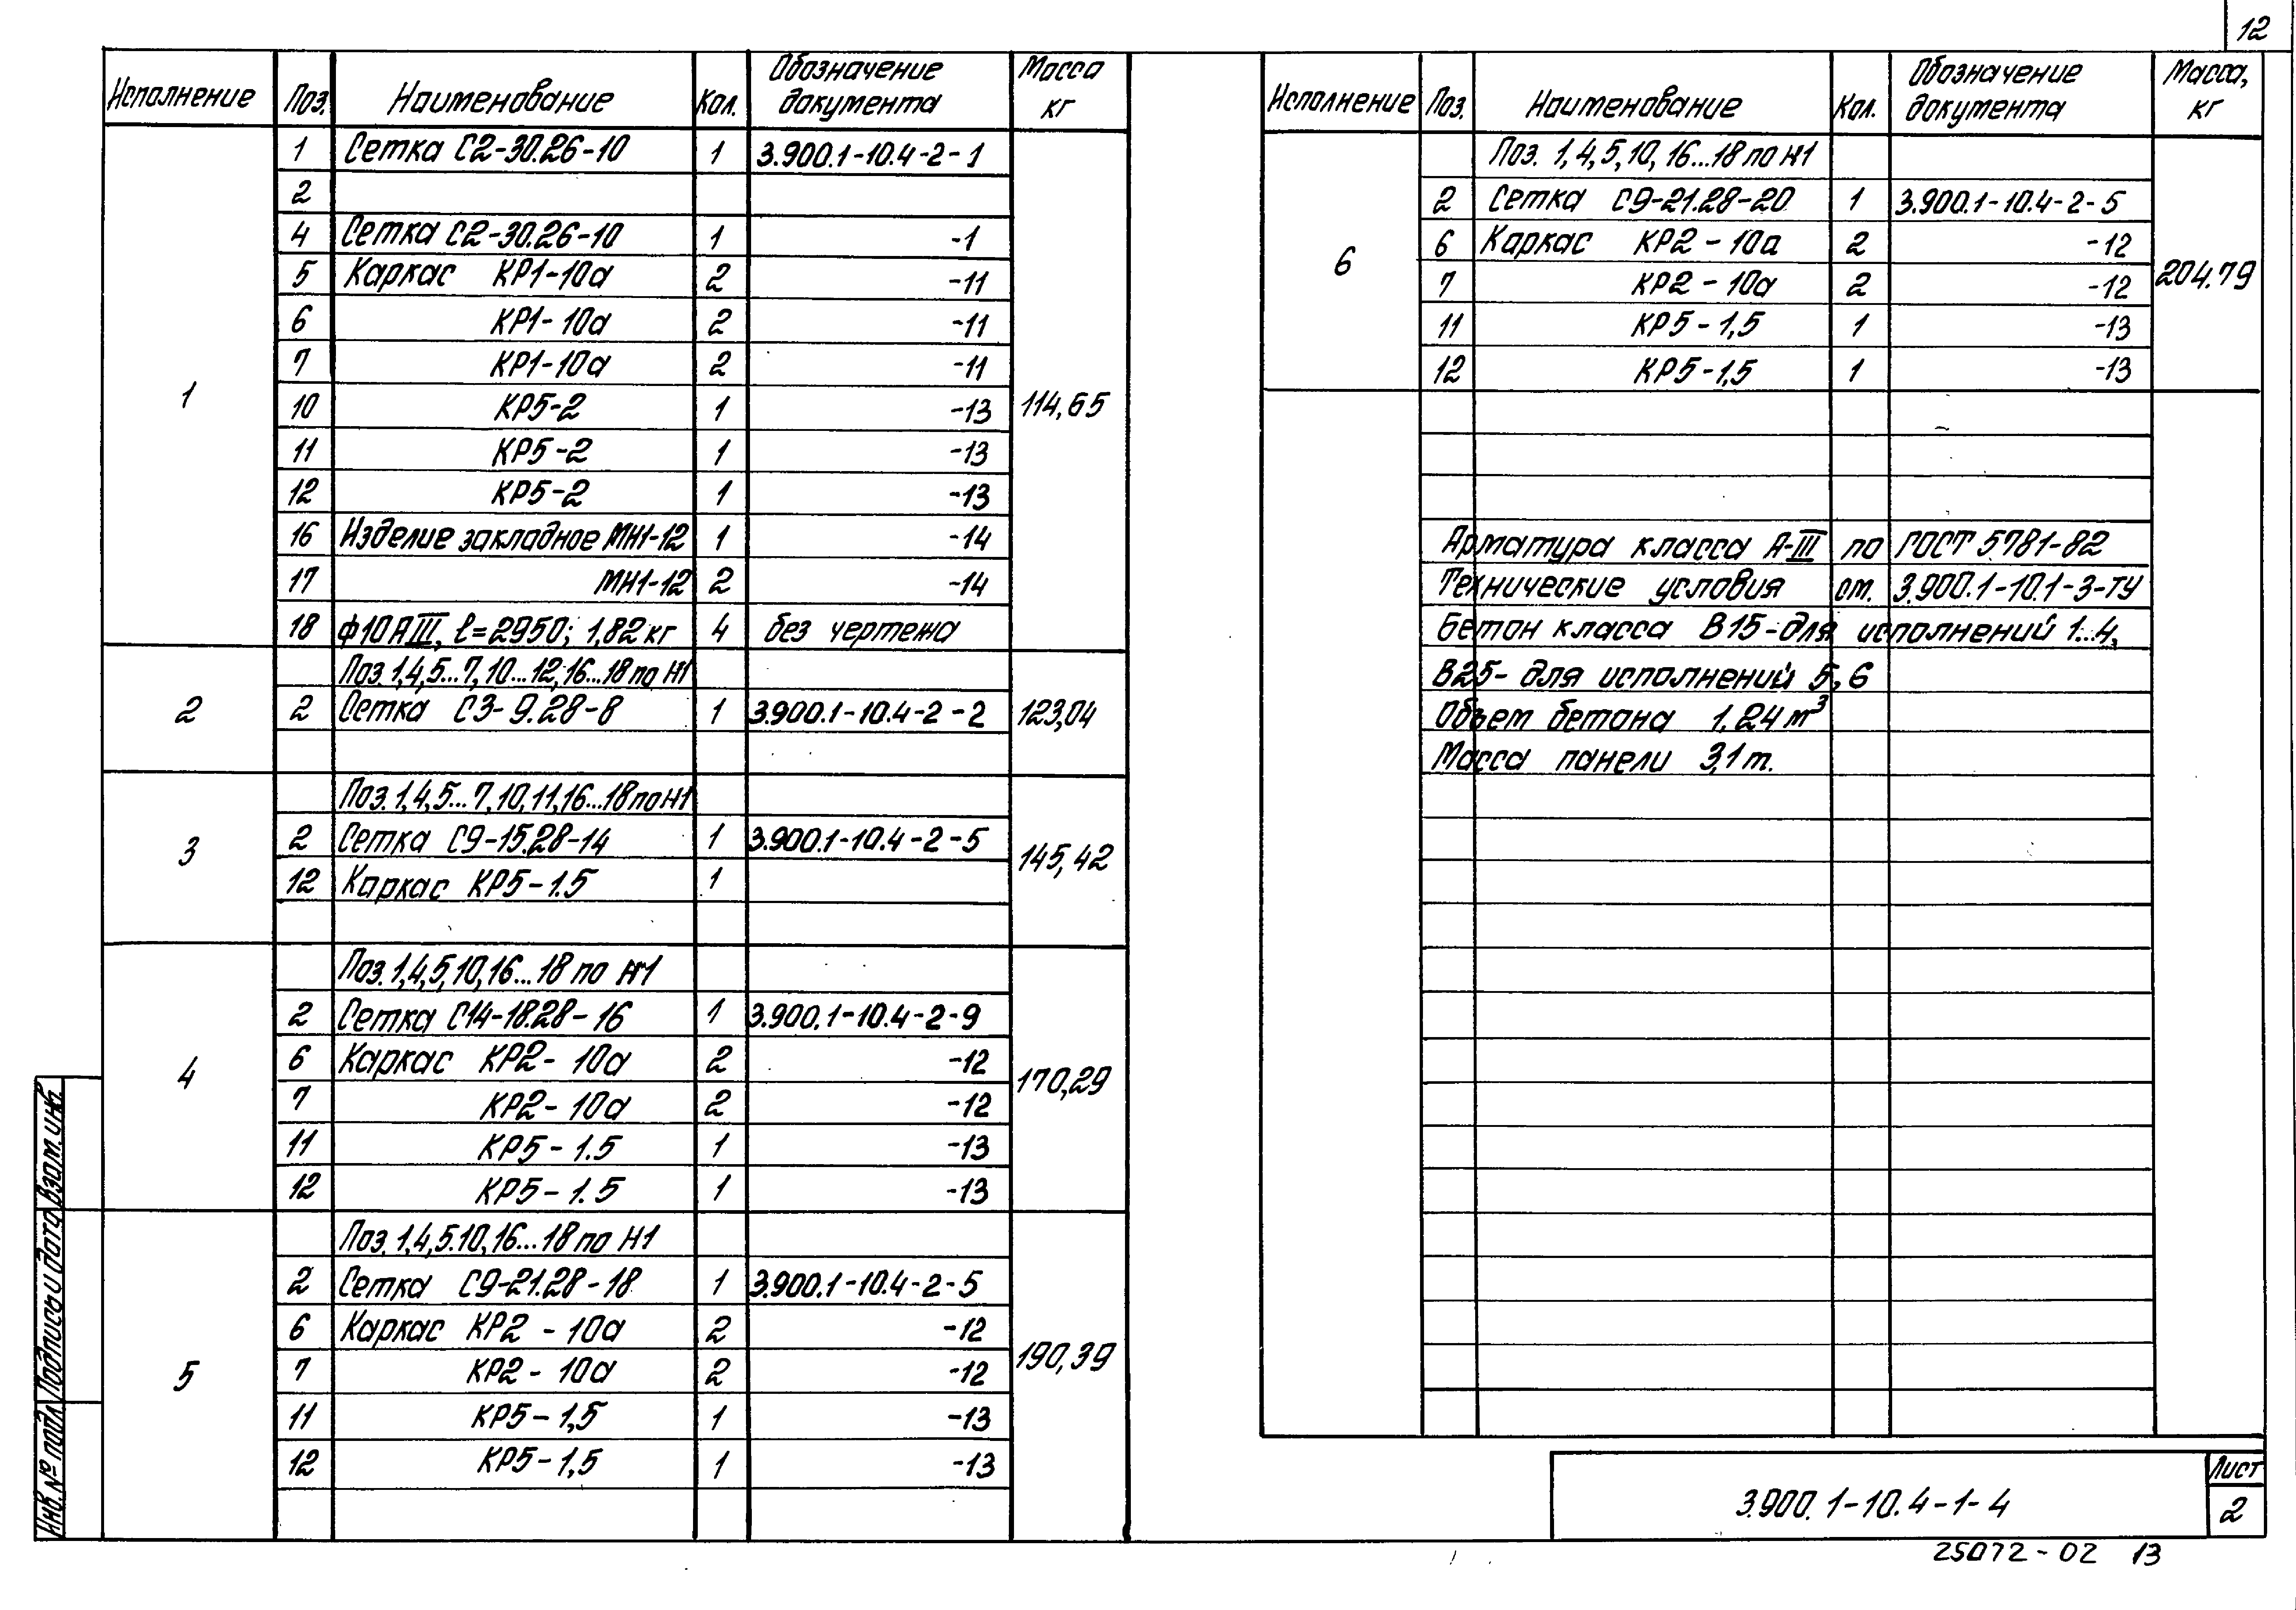 12
Исполнение Поз. Наименование Кол. Обозначение документа Масса кг
1
1 Сетка С2-30.26-10 1 3.900.1-10.4-2-1
2
4 Сетка С2-30.26-10 1 -1
5 Каркас КР1-10а 2 -11
6 КР1-10а 2 -11
7 КР1-10а 2 -11
10 КР5-2 1 -13
11 КР5-2 1 -13
12 КР5-2 1 -13
16 Изделие закладное МН1-12 1 -14
17 МН1-12 2 -14
18 ф10АIII, l=2950; 1,82кг 4 без чертежа
114,65
2
Поз. 1,4,5...7,10...12,16...18 по Н1
2 Сетка С3-9.28-8 1 3.900.1-10.4-2-2
123,04
3
Поз. 1,4,5...7,10,11,16...18 по Н1
2 Сетка С9-15.28-14 1 3.900.1-10.4-2-5
12 Каркас КР5-1.5 1
145,42
4
Поз. 1,4,5,10,16...18 по Н1
2 Сетка С14-18.28-16 1 3.900.1-10.4-2-9
6 Каркас КР2-10а 2 -12
7 КР2-10а 2 -12
11 КР5-1.5 1 -13
12 КР5-1.5 1 -13
170,29
5
Поз. 1,4,5.10,16...18 по Н1
2 Сетка С9-21.28-18 1 3.900.1-10.4-2-5
6 Каркас КР2-10а 2 -12
7 КР2-10а 2 -12
11 КР5-1,5 1 -13
12 КР5-1,5 1 -13
190,39
Исполнение Поз. Наименование Кол. Обозначение документа Масса, кг
6
Поз. 1,4,5,10,16...18 по Н1
2 Сетка С9-21.28-20 1 3.900.1-10.4-2-5
6 Каркас КР2-10а 2 -12
7 КР2-10а 2 -12
11 КР5-1,5 1 -13
12 КР5-1,5 1 -13
204.79
Арматура класса А-III по ГОСТ 5781-82
Технические условия см. 3.900.1-10.1-3-ТУ
Бетон класса В15-для исполнений 1...4,
В25- для исполнений 5,6
Объем бетона 1,24м³
Масса панели 3,1т.
Инв. № подл. Подпись и дата Взам. инв.
3.900.1-10.4-1-4
Лист
2
25072-02 13